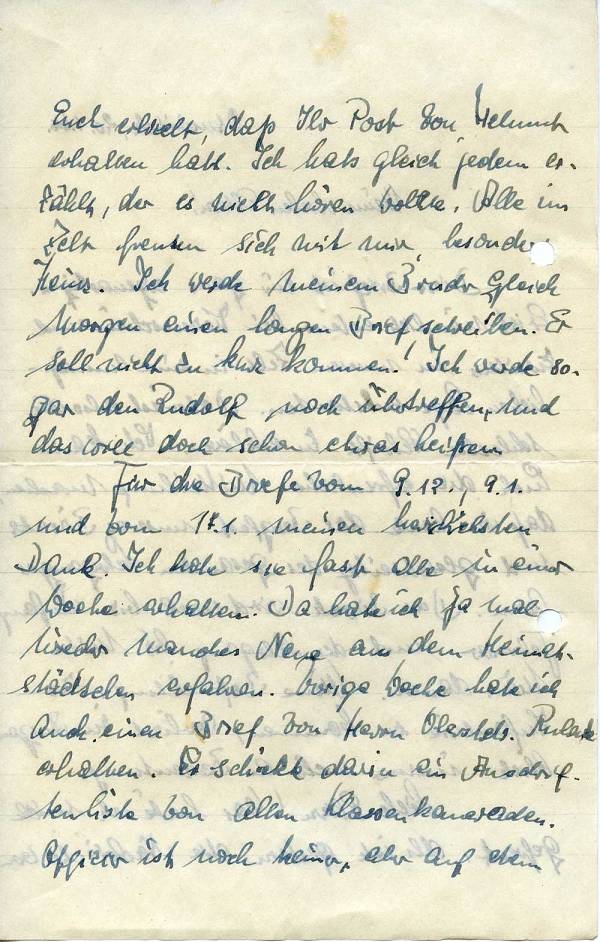 Euch erhielt, daß Ihr Post von Helmut
erhalten habt. Ich habs gleich jedem er-
zählt, der es nicht hören wollte. Alle im
Zelt freuten sich mit mir, besonders
Heinz. Ich werde meinem Bruder gleich
morgen einen langen Brief schreiben. Er
soll nicht zu kurz kommen! Ich werde so-
gar den Rudolf noch übertreffen, und
das will doch schon etwas heißen
Für die Briefe vom 9.12., 9.1.
und vom 17.1. meinen herzlichsten
Dank. Ich habe sie fast alle in einer
Woche erhalten. Da habe ich ja mal
wieder manches Neue aus dem Heimat-
städtchen erfahren. Vorige Woche habe ich
auch einen Brief von Herrn
erhalten. Er schickte darin ein Anschrif-
tenliste von allen Klassenkameraden.
Offizier ist noch keiner, aber auf dem